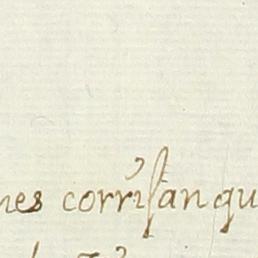 nes corriſan qu